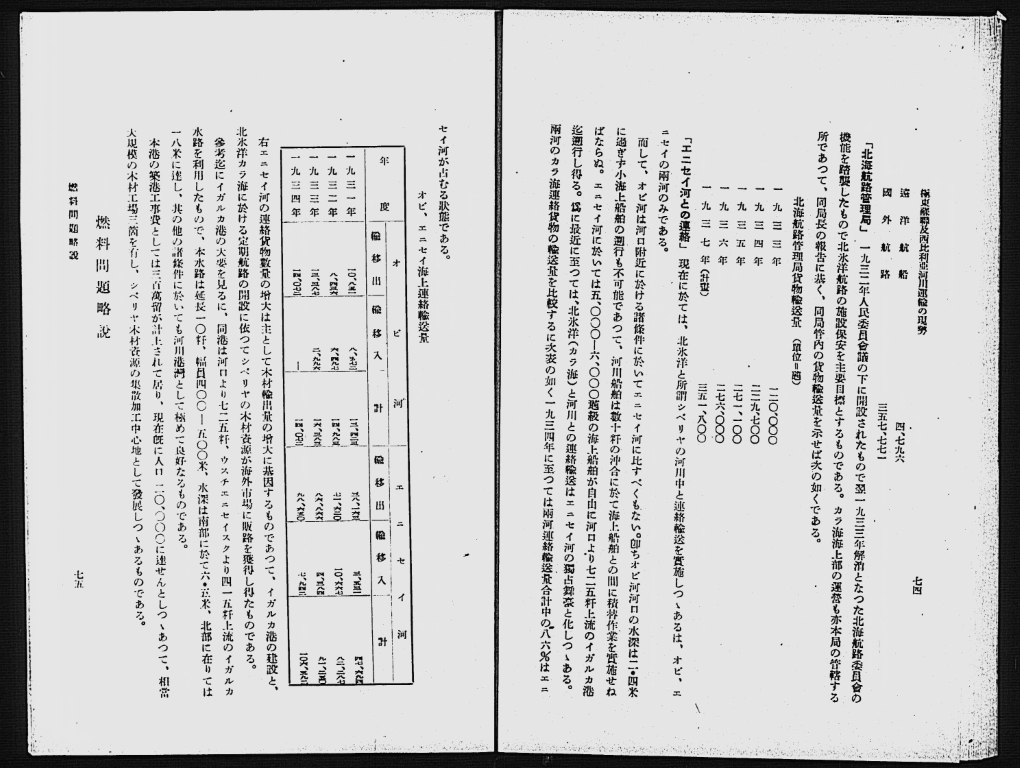 極東蘇聯及西比利亞河川運輸の現勢
七四
遠洋航船　四、七九六
國外航路　三五七、七七一
「北海航路管理局」　一九三二年人民委員會議の下に開設されたもので翌一九三三年解消となつた北海航路委員會の
機能を踏襲したもので北氷洋航路の施設保安を主要目標とするものである。カラ海海上部の運營も亦本局の管轄する
所であつて、同局長の報告に基く、同局管內の貨物輸送量を示せば次の如くである。
北海航路管理局貨物輸送量　（單位＝噸）
一九三三年　一二〇、〇〇〇
一九三四年　二二九、七〇〇
一九三五年　二七一、一〇〇
一九三六年　二七六、〇〇〇
一九三七年（計畫）　三五一、八〇〇
「エニセイ河との連絡」　現在に於ては、北氷洋と所謂シベリヤの河川中と連絡輸送を實施しつゝあるは、オビ、エ
ニセイの兩河のみである。
而して、オビ河は河口附近に於ける諸條件に於いてエニセイ河に比すべくもない。卽ちオビ河河口の水深は二・四米
に過ぎず小海上船舶の遡行も不可能であつて、河川船舶は數十粁の沖合に於て海上船舶との間に積替作業を實施せね
ばならぬ。エニセイ河に於いては五、〇〇〇―六、〇〇〇噸級の海上船舶が自由に河口より七二五粁上流のイガルカ港
迄遡行し得る。爲に最近に至つては、北氷洋（カラ海）と河川との連絡輸送はエニセイ河の獨占舞臺と化しつゝある。
兩河のカラ海連絡貨物の輸送量を比較するに次表の如く一九三四年に至つては兩河連絡輸送量合計中の八六％はエニ
セイ河が占むる狀態である。
オビ、エニセイ海上連絡輸送量
年度
オビ河
輸移出
輸移入
計
エニセイ河
輸移出
輸移入
計
一九三一年
一九三二年
一九三三年
一九三四年
右エニセイ河の連絡貨物數量の增大は主として木材輸出量の增大に基因するものであつて、イガルカ港の建設と、
北氷洋カラ海に於ける定期航路の開設に依つてシベリヤの木材資源が海外市場に販路を獲得し得たものである。
參考迄にイガルカ港の大要を見るに、同港は河口より七二五粁、ウスチエニセイスクより四一五粁上流のイガルカ
水路を利用したもので、本水路は延長一〇粁、幅員四〇〇―五〇〇米、水深は南部に於て六・五米、北部に在りては
一八米に達し、其の他の諸條件に於いても河川港灣として極めて良好なるものである。
本港の築港工事費としては三百萬留が計上されて居り、現在旣に人口二〇、〇〇〇に達せんとしつゝあつて、相當
大規模の木材工場三箇を有し、シベリヤ木材資源の集散加工中心地として發展しつゝあるものである。
燃料問題略說
燃料問題略說
七五